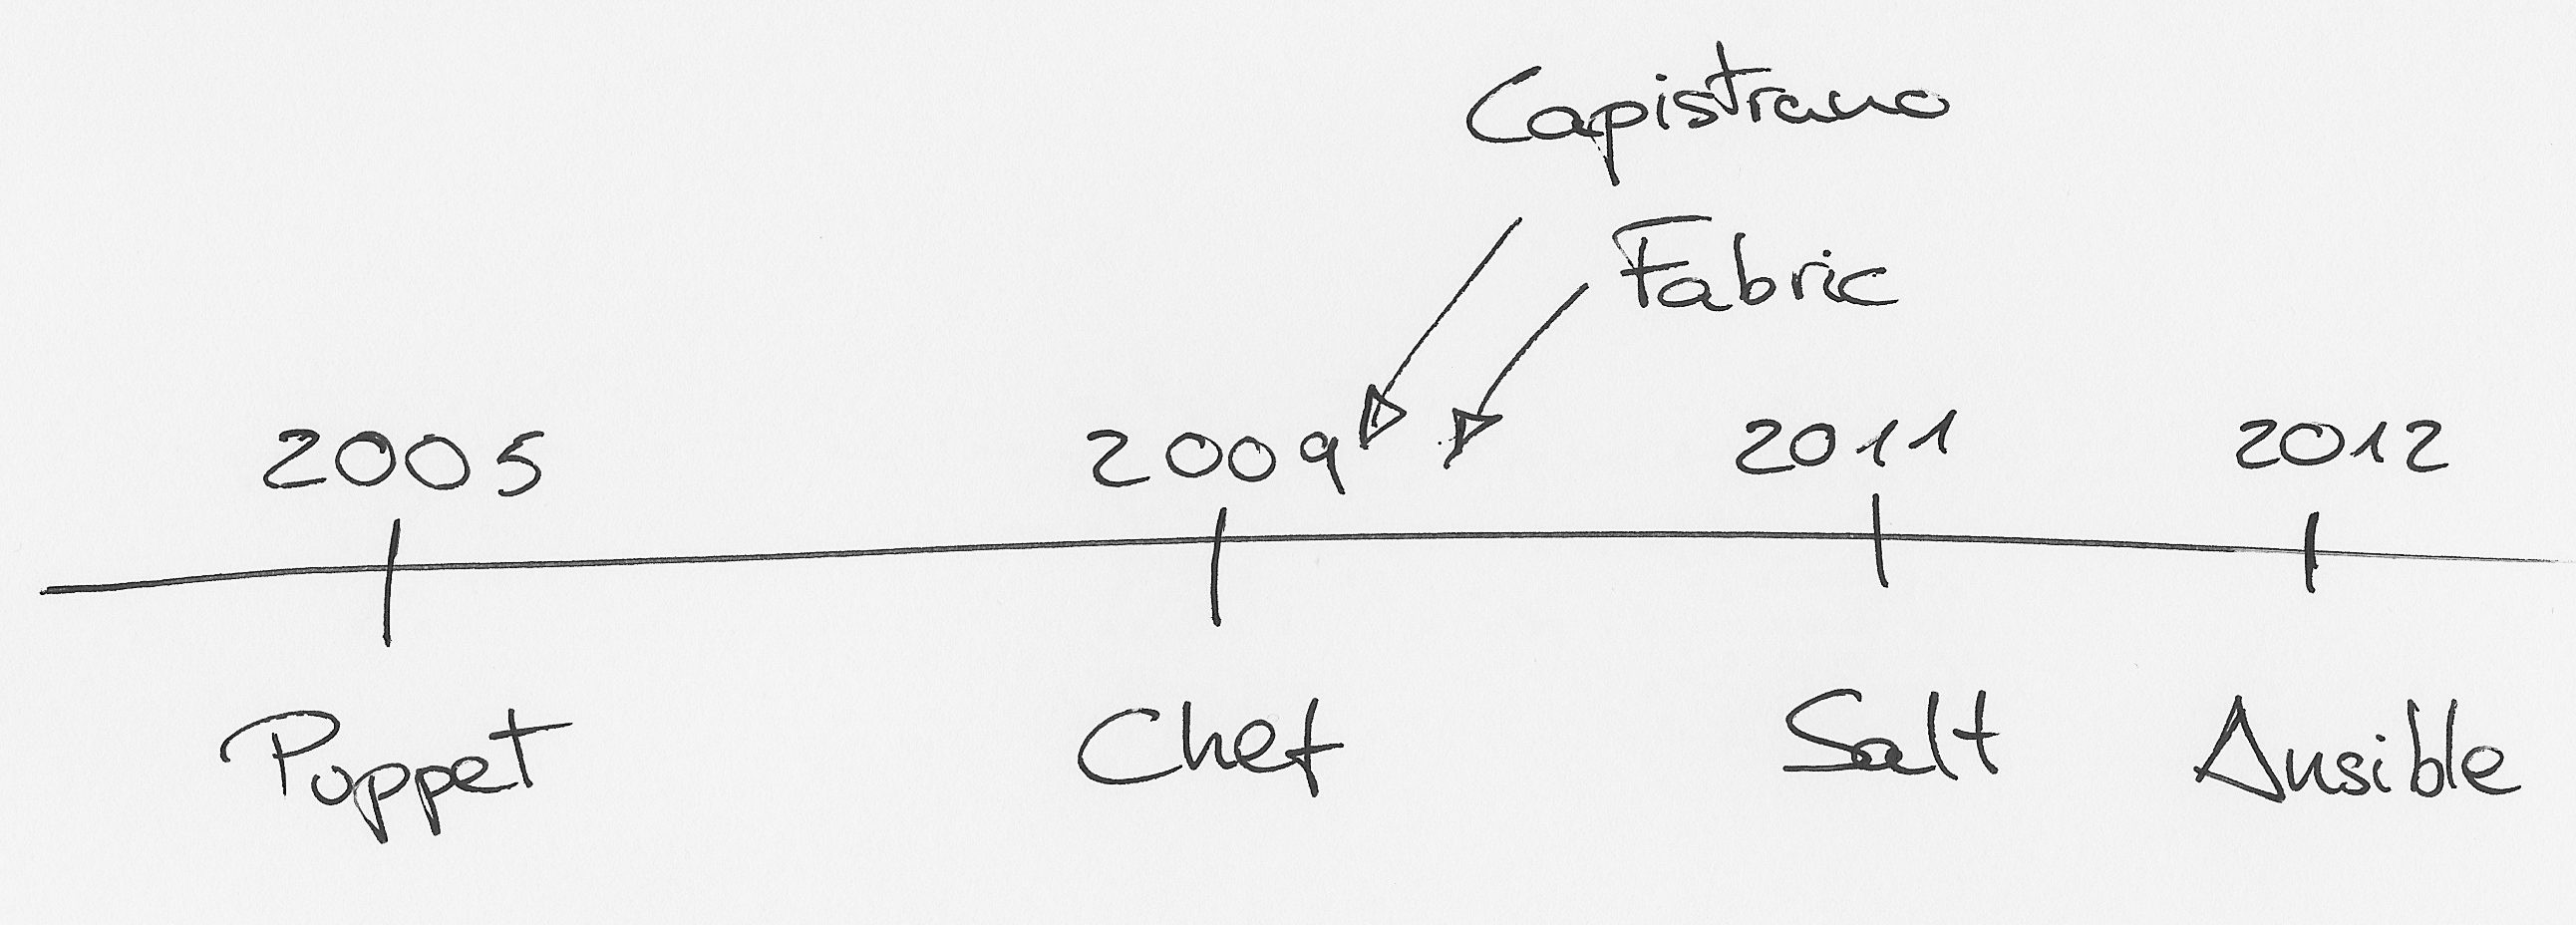 Capistrano
Fabric
2005 2009 2011 2012
Puppet Chef Salt Ansible